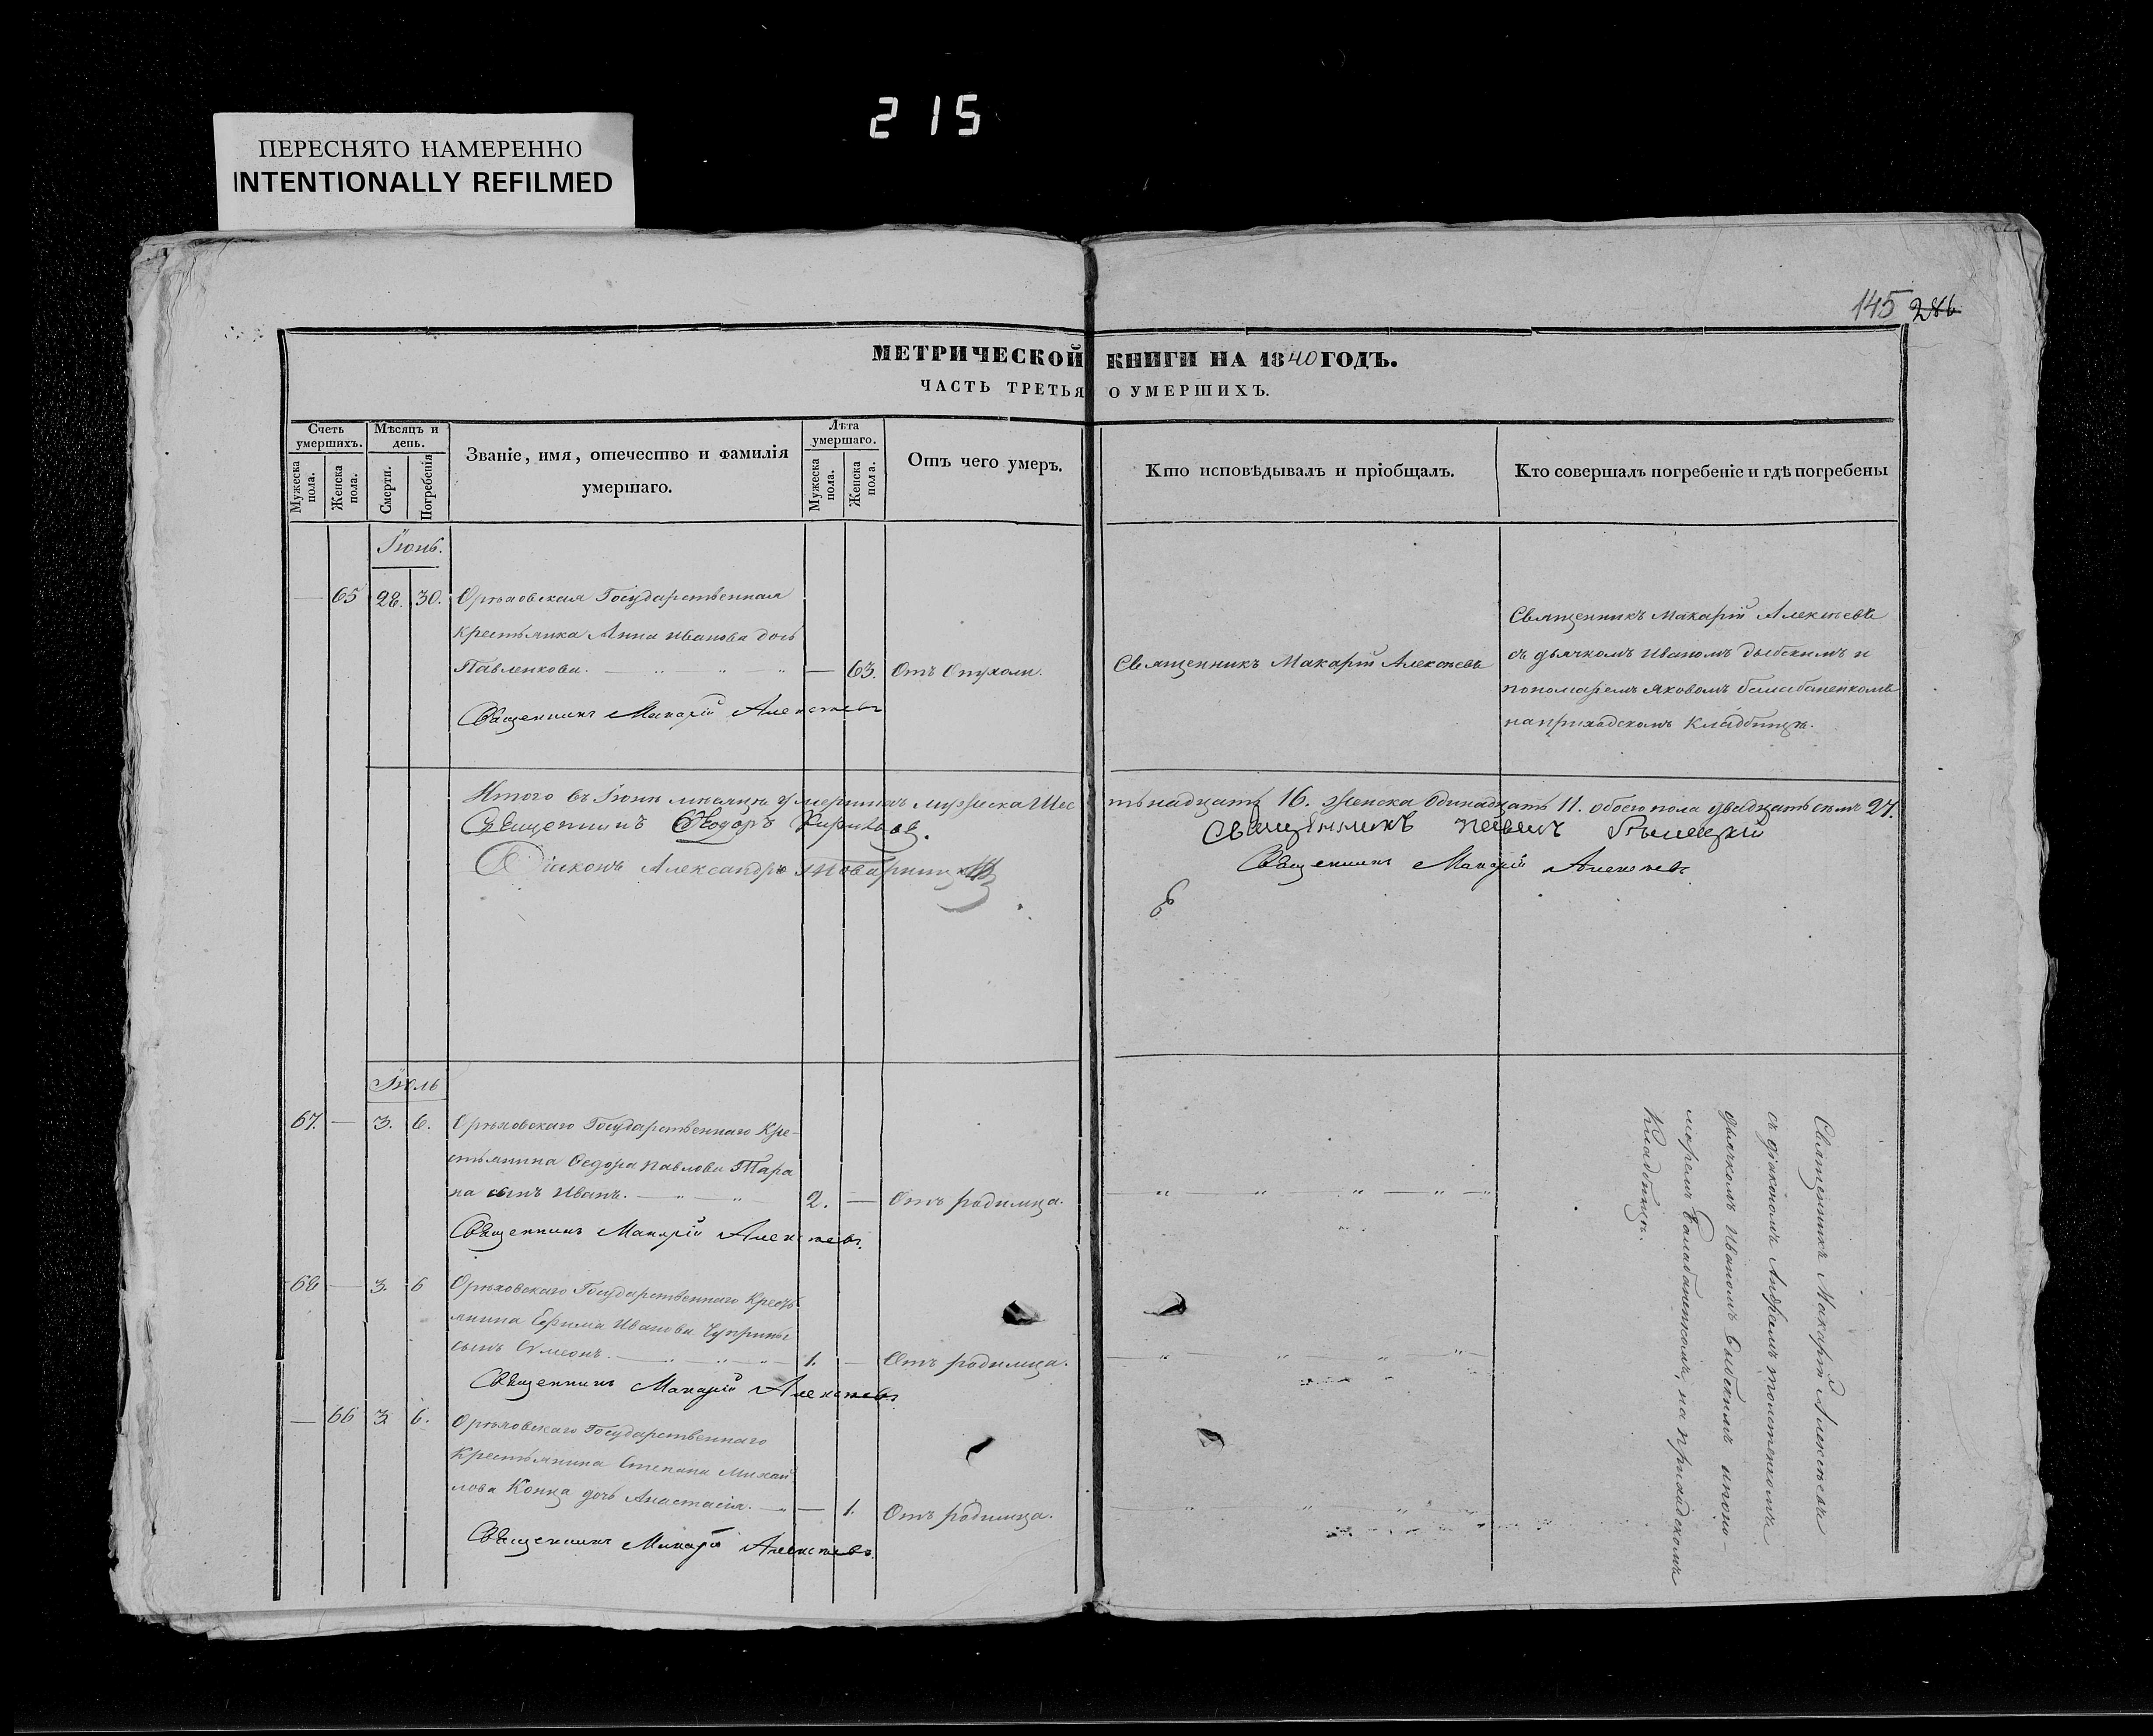 215
ПЕРЕСНЯТО НАМЕРЕННО
INTENTIONALLY REFILMED
145 286
МЕТРИЧЕСКОЙ КНИГИ НА 1840 ГОДЪ.
ЧАСТЬ ТРЕТЬЯ О УМЕРШИХЪ.
Счетъ умершихъ.
Мужеска пола.
Женска пола.
Мѣсяцъ и день.
Смерти.
Погребенія
Званіе, имя, отечество и фамилія
умершаго.
Лѣта умершаго.
Мужеска пола.
Женска пола.
Отъ чего умеръ.
Кто исповѣдывалъ и пріобщалъ.
Кто совершалъ погребеніе и гдѣ погребены
Іюнь.
— 65 28. 30. Орѣховская Государственная
крестьянка Анна Иванова дочь
Павленкова. — 63. Отъ Опухоли.
Священникъ Макарій Алексѣевъ
Священникъ Макарій Алексѣевъ
Священникъ Макарій Алексѣевъ
съ дьячкомъ Иваномъ и
пономаремъ Яковомъ Балабаненкомъ
на приходскомъ Кладбищѣ.
Итого въ Іюнѣ мѣсяцѣ умершихъ мужеска Шестьнадцать 16. женска Одинадцать 11. обоего пола двадцать семь 27.
Священникъ Ѳеодоръ
Діаконъ Александръ
Священникъ
Священникъ Макарій Алексѣевъ
Іюль
67. — 3. 6. Орѣховскаго Государственнаго Кре-
стьянина Ѳедора Павлова Тара
на сынъ Иванъ. 2. — Отъ родимца.
Священникъ Макарій Алексѣевъ.
68 — 3. 6 Орѣховскаго Государственнаго Кресть
янина Ефима Иванова Чуприны
сынъ Симеонъ. 1. — Отъ родимца.
Священникъ Макарій Алексѣевъ
— 66 3. 6. Орѣховскаго Государственнаго
Крестьянина Степана Михай
лова Конца дочь Анастасія. — 1. Отъ родимца.
Священникъ Макарій Алексѣевъ.
Священникъ Макарій Алексѣевъ
съ діакономъ
дьячкомъ Иваномъ и поно-
маремъ Балабаненкомъ, на приходскомъ
Кладбищѣ.